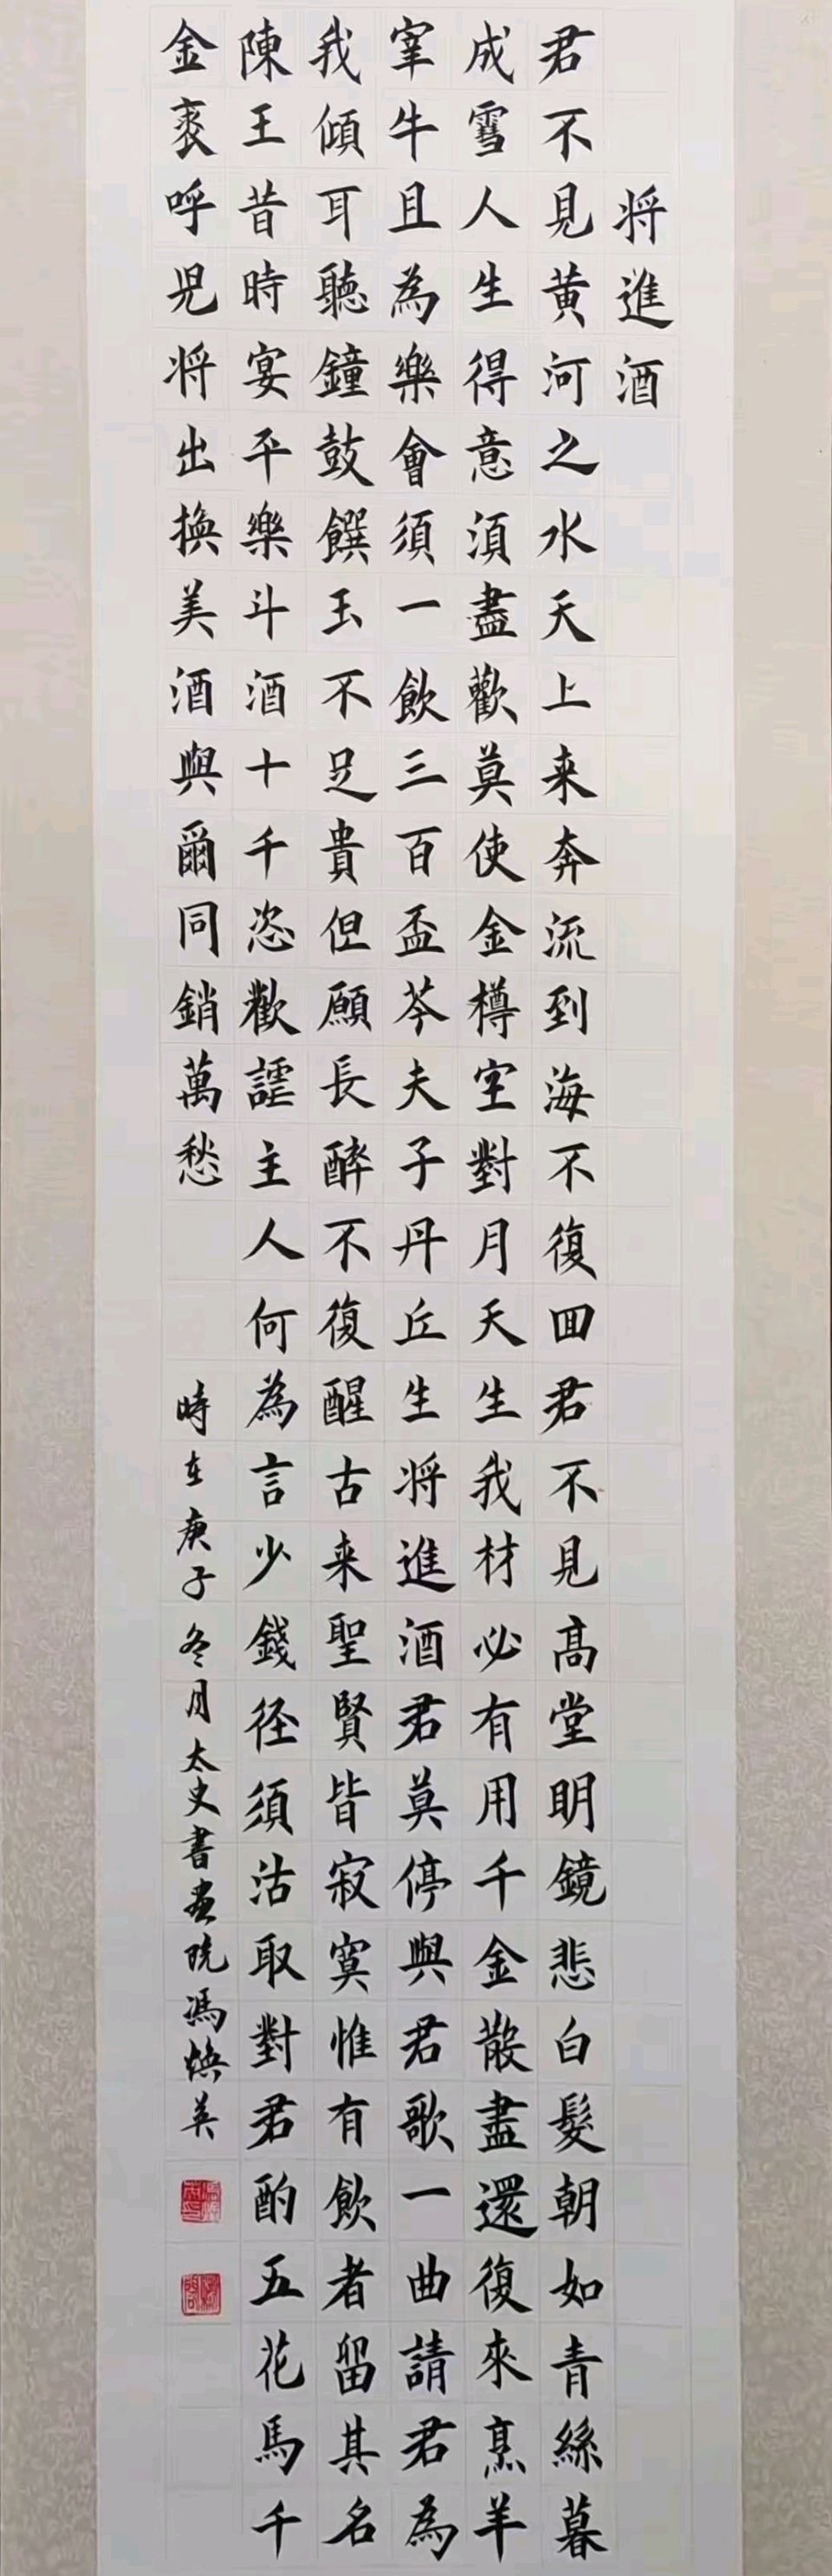 将進酒
君不見黄河之水天上来奔流到海不復回君不見高堂明鏡悲白髮朝如青絲暮
成雪人生得意須盡歡莫使金樽空對月天生我材必有用千金散盡還復來烹羊
宰牛且為樂會須一飲三百盃芩夫子丹丘生将進酒君莫停與君歌一曲請君為
我傾耳聽鐘鼓饌玉不足貴但願長醉不復醒古来聖賢皆寂寞惟有飲者留其名
陳王昔時宴平樂斗酒十千恣歡謔主人何為言少錢径須沽取對君酌五花馬千
金裘呼児将出換美酒與爾同銷萬愁
時在庚子冬月太史書畫院馮焕英